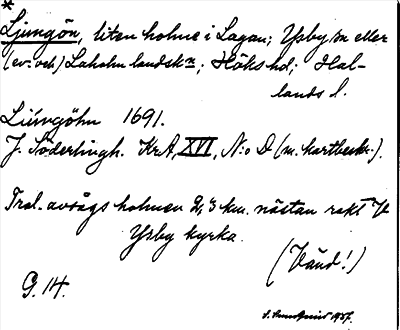 *
Ljungön, liten holme i Lagan; Ysby sn eller
(ev. och) Laholm landskn; Höks hd; Hal-
lands l.
Liungöhn 1691.
J. Söderlingh. KrA, XVI, N:o D (m. kartbeskr.).
Trol. avsågs holmen 2,3 km. nästan rakt V
Ysby kyrka.
(Vänd!)
G. 14.
1957.